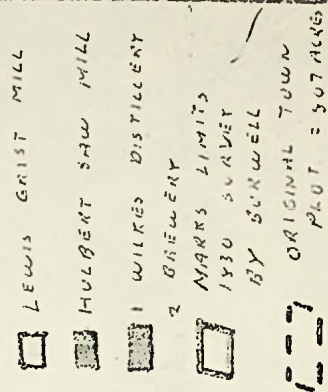 LEWIS GRIST MILL
HULBERT SAW MILL
1 WILKES DISTILLERY
2 BREWERY
MARKS LIMITS
1830 SURVEY
BY BURWELL
ORIGINAL TOWN
PLOT = 507 ACRES